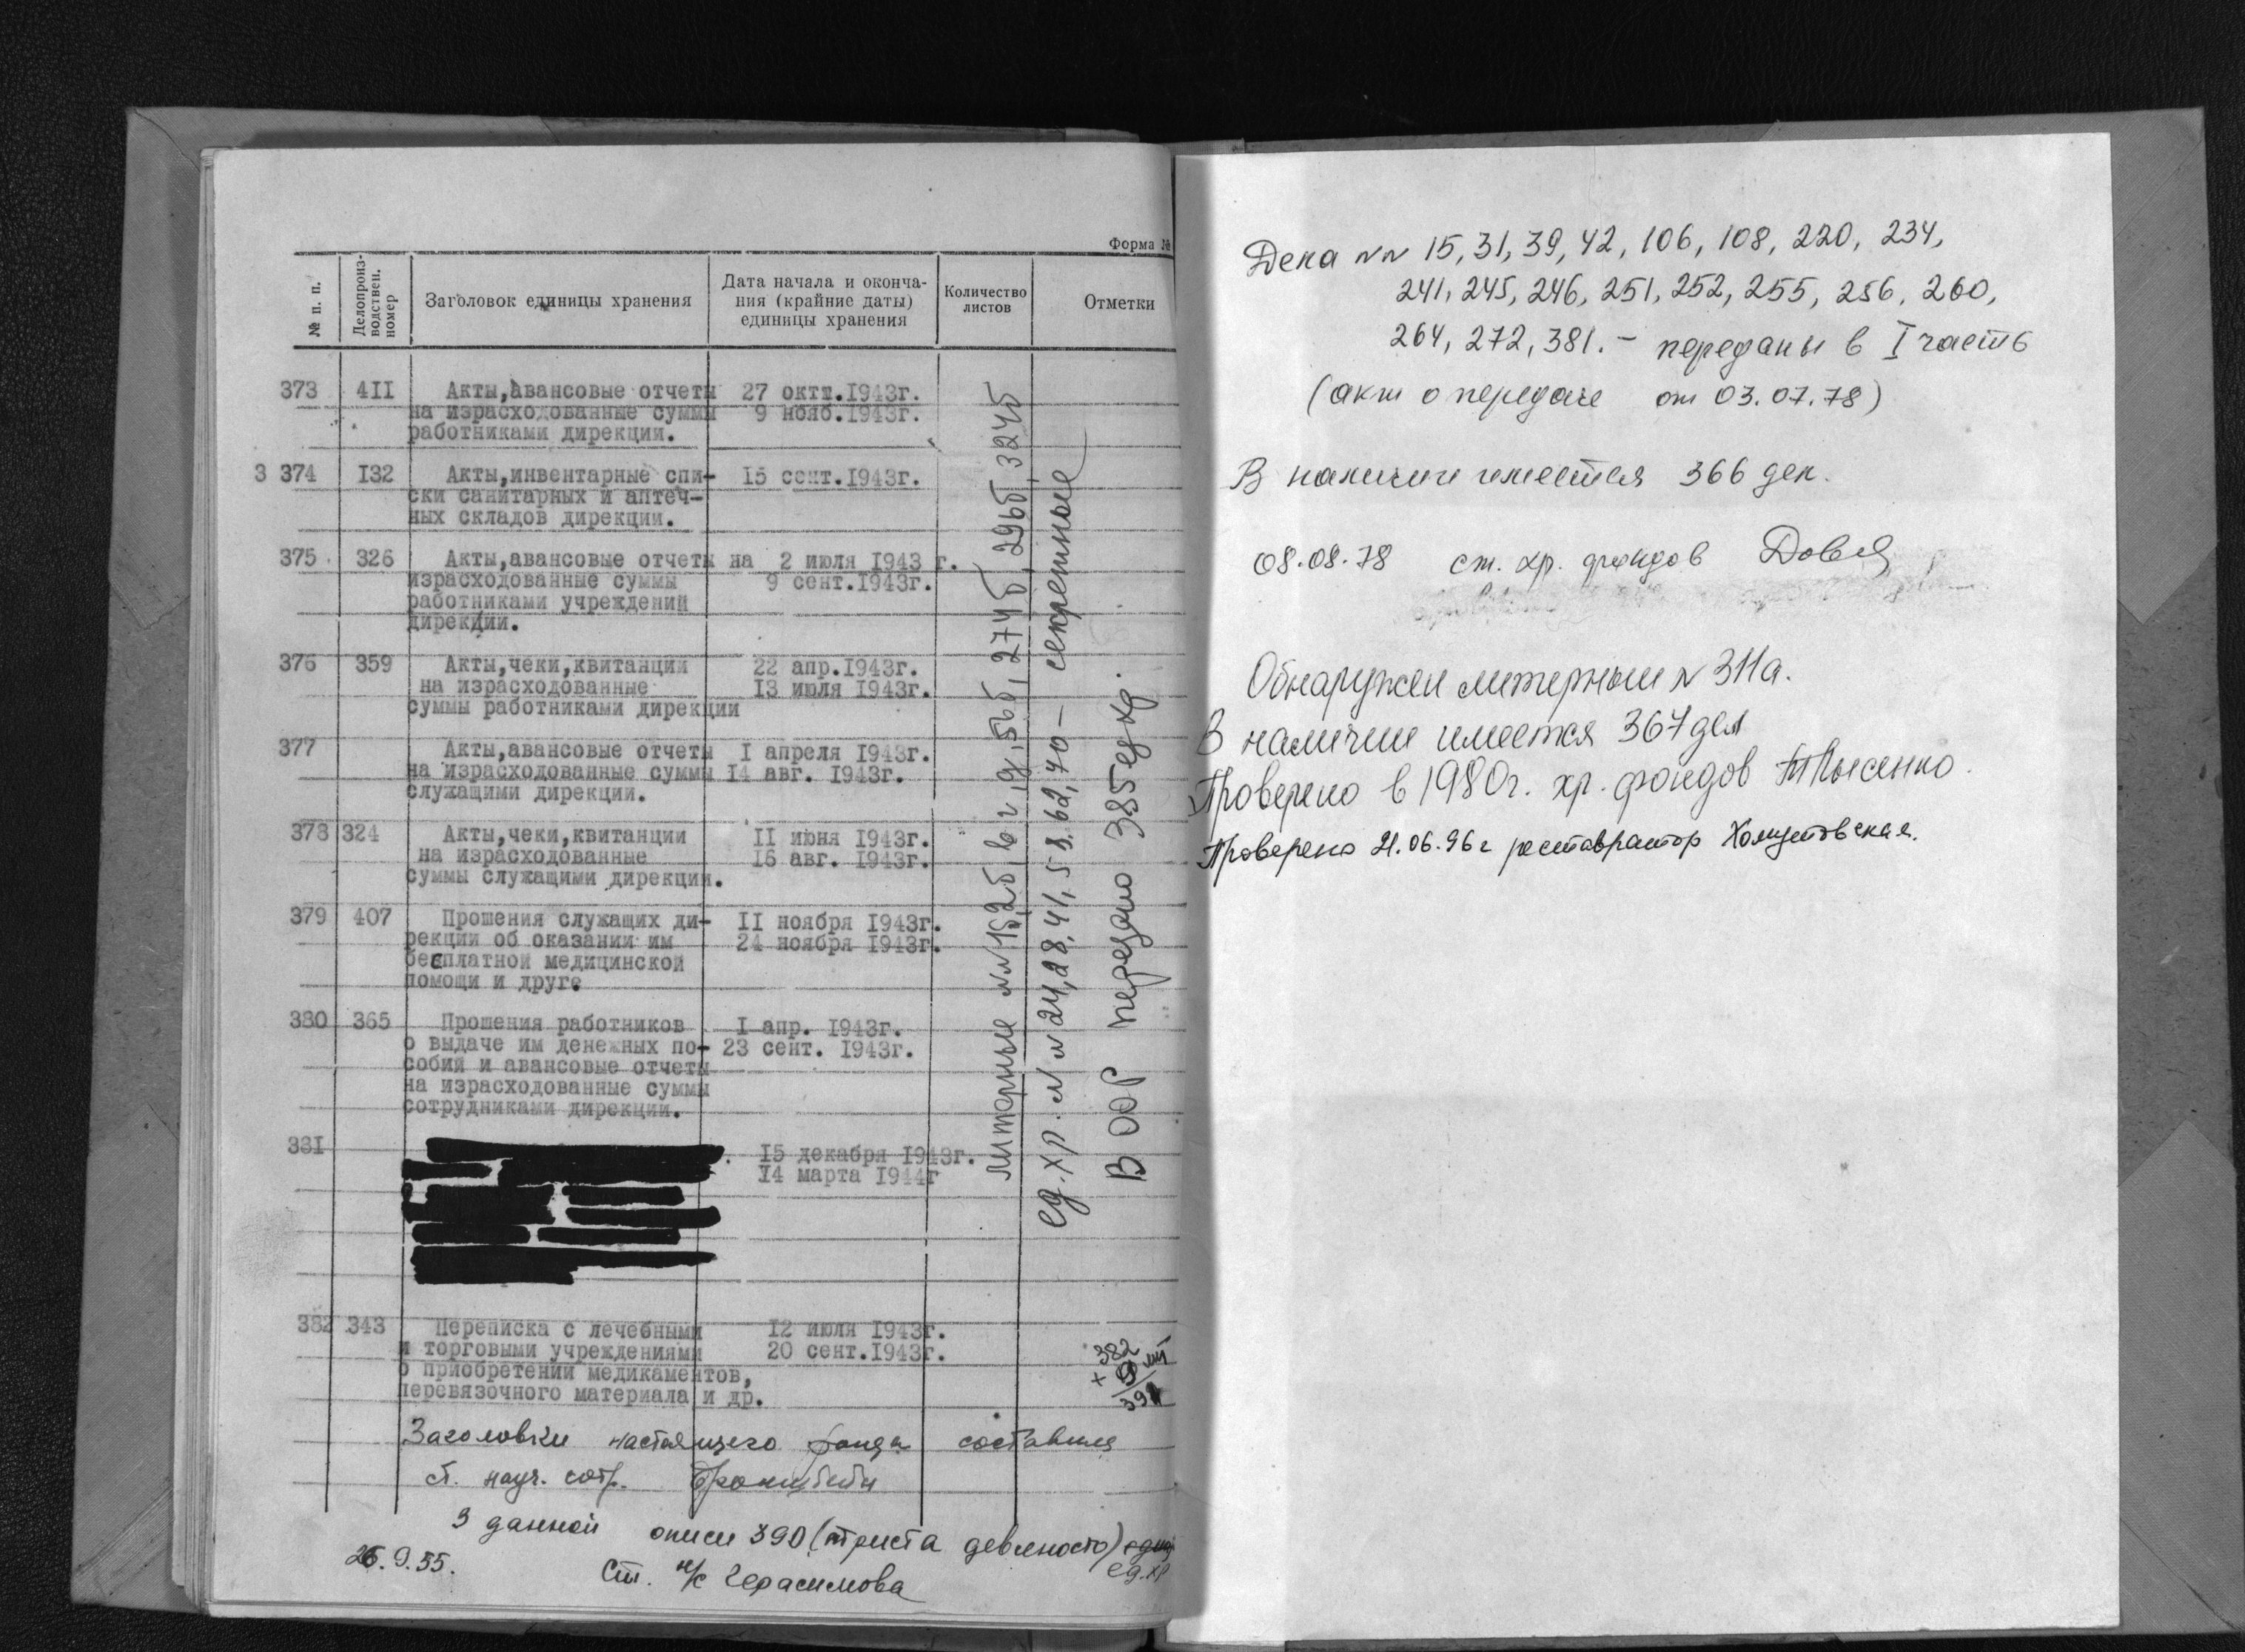 Форма №
№ п. п.
Делопроиз-
водствен.
номер
Заголовок единицы хранения
Дата начала и оконча-
ния (крайние даты)
единицы хранения
Количество
листов
Отметки
373 4II Акты,авансовые отчеты 27 окт.1943г.
на израсходованные суммы 9 нояб.1943г.
работниками дирекции.
3 374 I32 Акты,инвентарные спи- 15 сент.1943г.
ски санитарных и аптеч-
ных складов дирекции.
375 326 Акты,авансовые отчеты на 2 июля I943 г.
израсходованные суммы 9 сент.1943г.
работниками учреждений
дирекции.
376 359 Акты,чеки,квитанции 22 апр.I943г.
на израсходованные I3 июля I943г.
суммы работниками дирекции
377 Акты,авансовые отчеты I апреля I943г.
на израсходованные суммы I4 авг. I943г.
служащими дирекции.
378 324 Акты,чеки,квитанции II июня I943г.
на израсходованные I6 авг. I943г.
суммы служащими дирекции.
379 407 Прошения служащих ди- II ноября I943г.
рекции об оказании им 24 ноября I943г.
бесплатной медицинской
помощи и друге
380 365 Прошения работников I апр. I943г.
о выдаче им денежных по- 23 сент. I943г.
собий и авансовые отчеты
на израсходованные суммы
сотрудниками дирекции.
38I I5 декабря I943г.
I4 марта I944г
382 343 Переписка с лечебными I2 июля I943г.
и торговыми учреждениями 20 сент.I943г.
о приобретении медикаментов,
перевязочного материала и др.
литерные 274б, 296б, 324б
ед.хр. №№ 24,28,41,58,62,70 – секретные
В ООР передано 385 ед.хр.
382
+ 9 лит
391
Заголовки настоящего фонда составила
ст. науч. сотр.
В данной описи 390 (триста девяносто)
ед.хр
26.9.55. Ст. н/с Герасимова
Дела №№ 15, 31, 39, 42, 106, 108, 220, 234,
241, 245, 246, 251, 252, 255, 256, 260,
264, 272, 381. – переданы в I часть
(акт о передаче от 03.07.78)
В наличии имеется 366 дел.
08.08.78 ст. хр. фондов
Обнаружен литерный № 311а.
В наличии имеется 367 дел
Проверено в 1980г. хр. фондов Лысенко.
Проверено 21.06.96г реставратор Хомутовская.